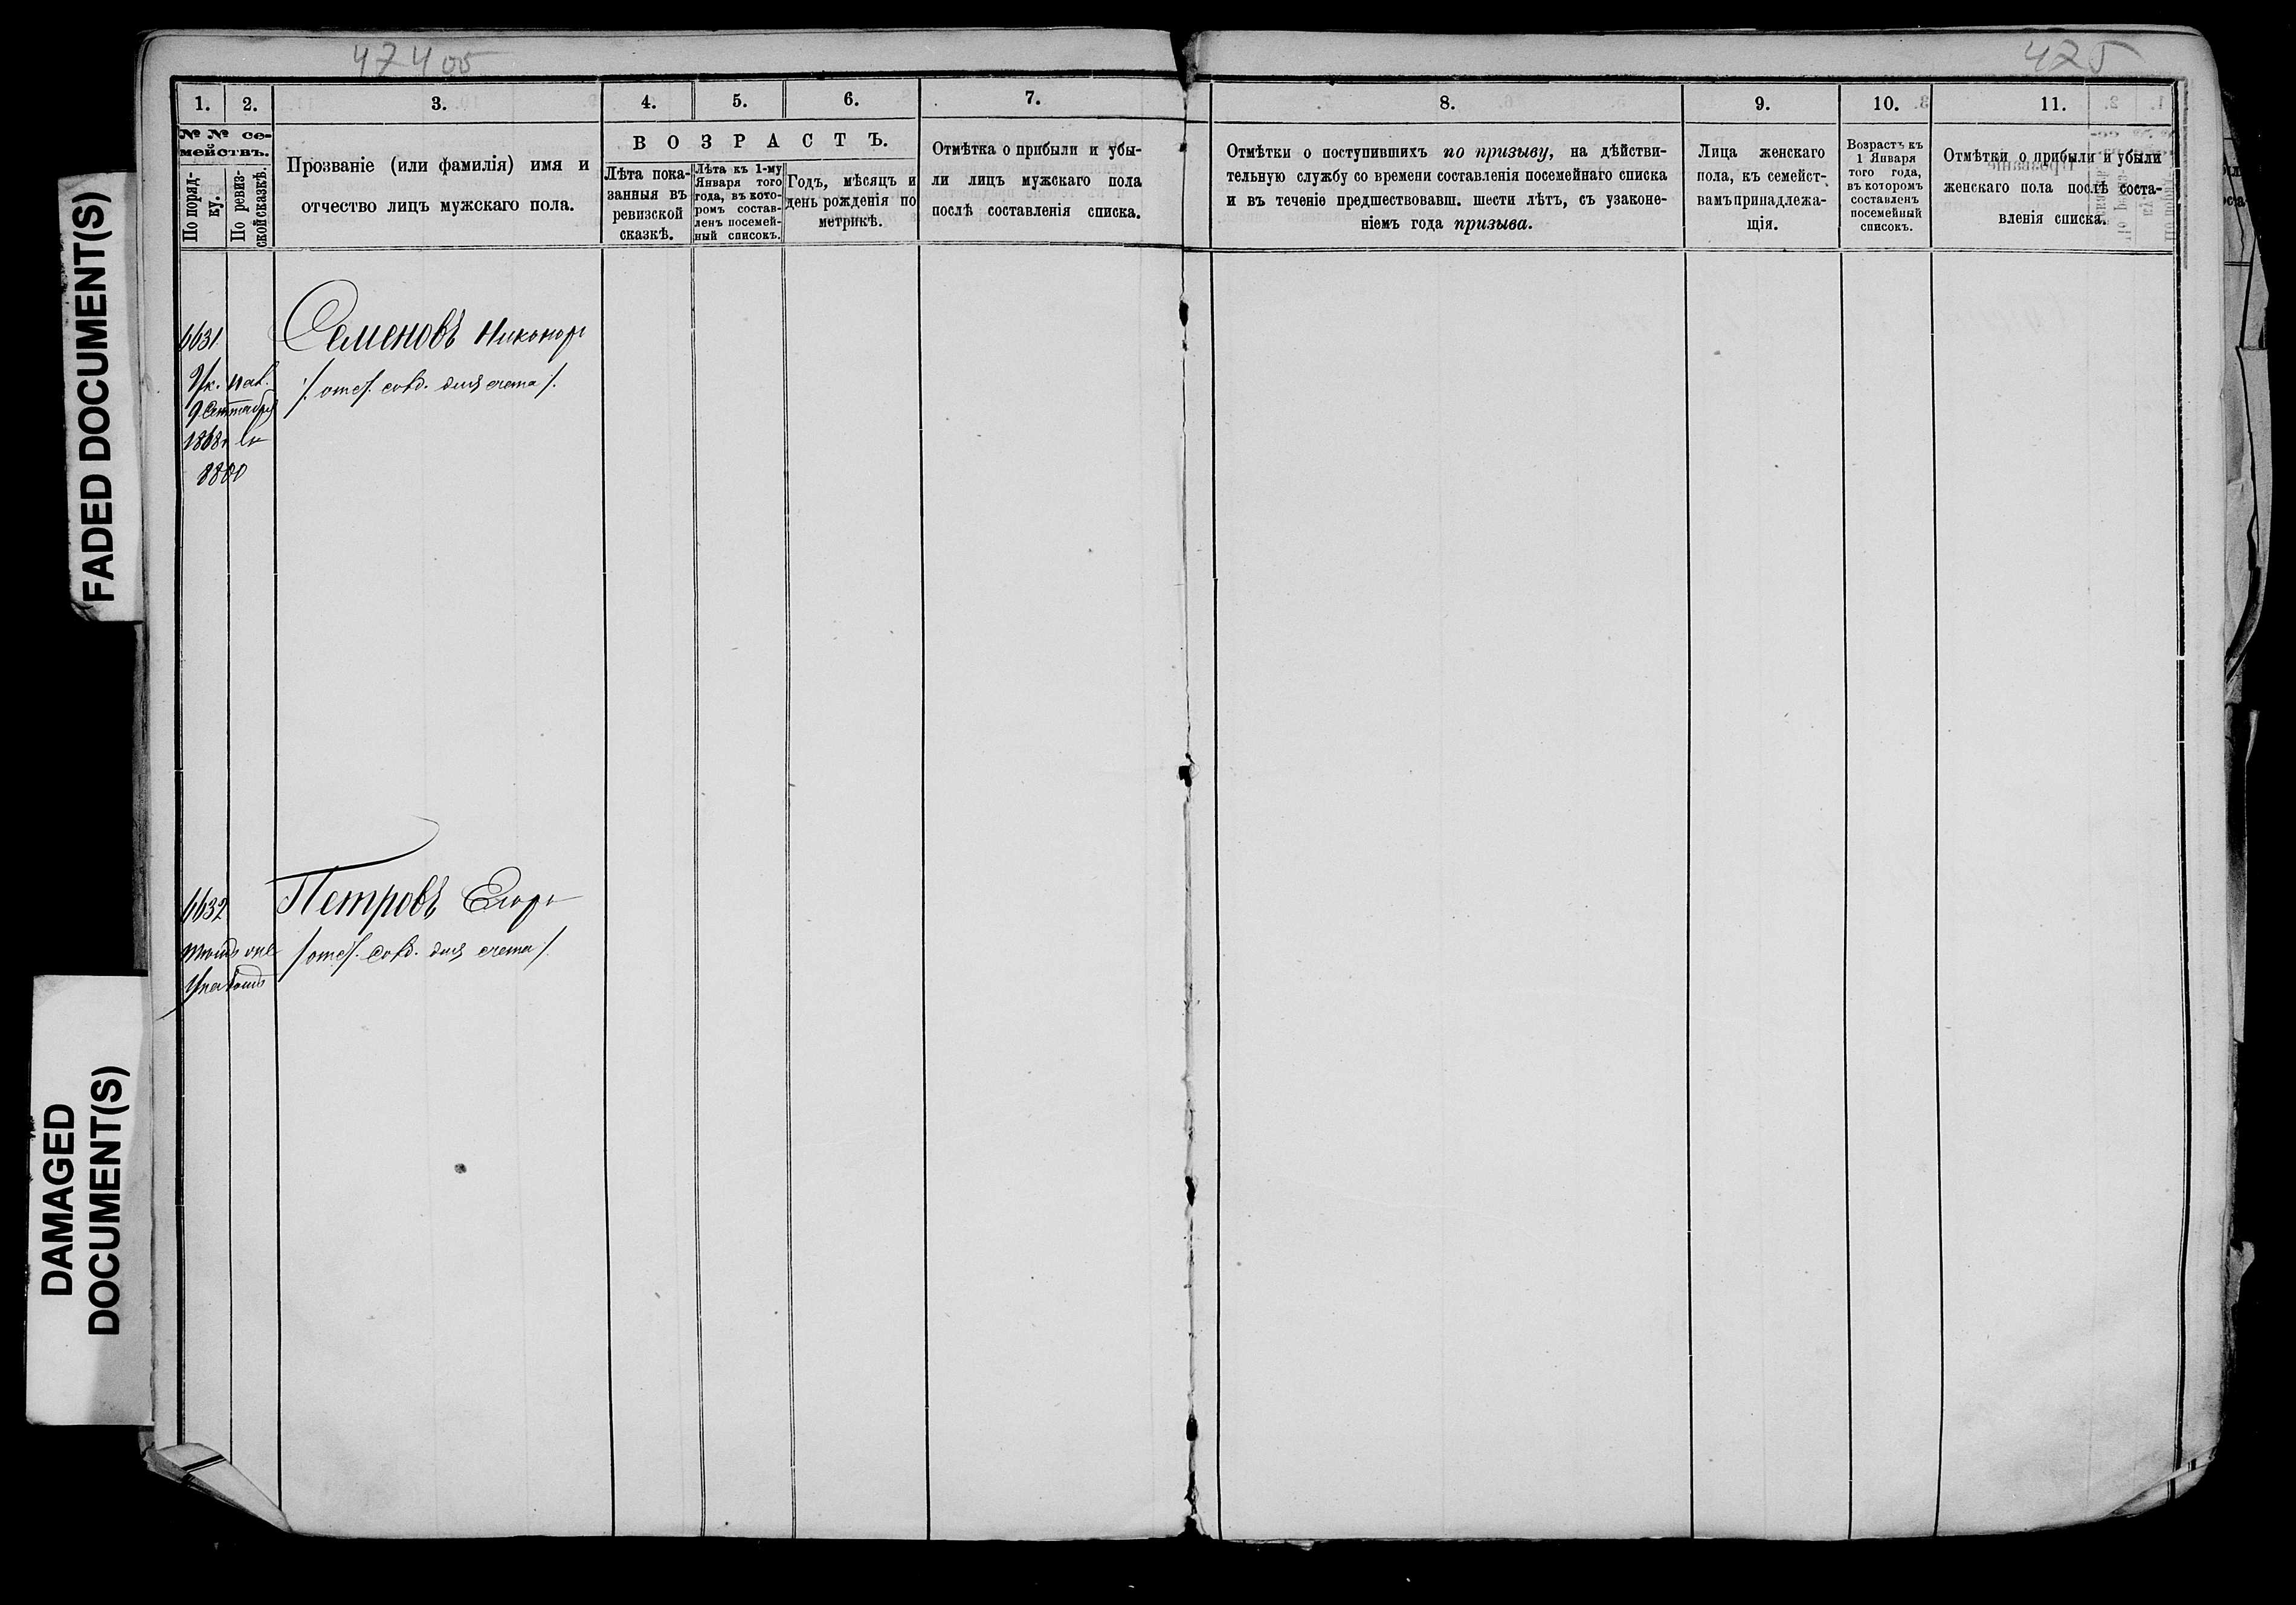 474 об
425
FADED DOCUMENT(S)
DAMAGED
DOCUMENT(S)
1.
2.
3.
4.
5.
6.
7.
8.
9.
10.
11.
№ № се-
мействъ.
По поряд-
ку.
По ревиз-
ской сказкѣ.
Прозваніе (или фамилія) имя и
отчество лицъ мужскаго пола.
ВОЗРАСТЪ.
Лѣта пока-
занныя въ
ревизской
сказкѣ.
Лѣта къ 1-му
Января того
года, въ кото-
ромъ состав-
ленъ посемей-
ный списокъ.
Годъ, мѣсяцъ и
день рожденія по
метрикѣ.
Отмѣтка о прибыли и убы-
ли лицъ мужскаго пола
послѣ составленія списка.
Отмѣтки о поступившихъ по призыву, на дѣйстви-
тельную службу со времени составленія посемейнаго списка
и въ теченіе предшествовавш. шести лѣтъ, съ узаконе-
ніемъ года призыва.
Лица женскаго
пола, къ семейст-
вамъ принадлежа-
щія.
Возрастъ къ
1 Января
того года,
въ которомъ
составленъ
посемейный
списокъ.
Отмѣтки о прибыли и убыли
женскаго пола послѣ соста-
вленія списка.
6631
Семеновъ Никоноръ
Ук. пал.
9 Сентября
1868 г.
8880
для счета
6632
Петровъ Егоръ
для счета